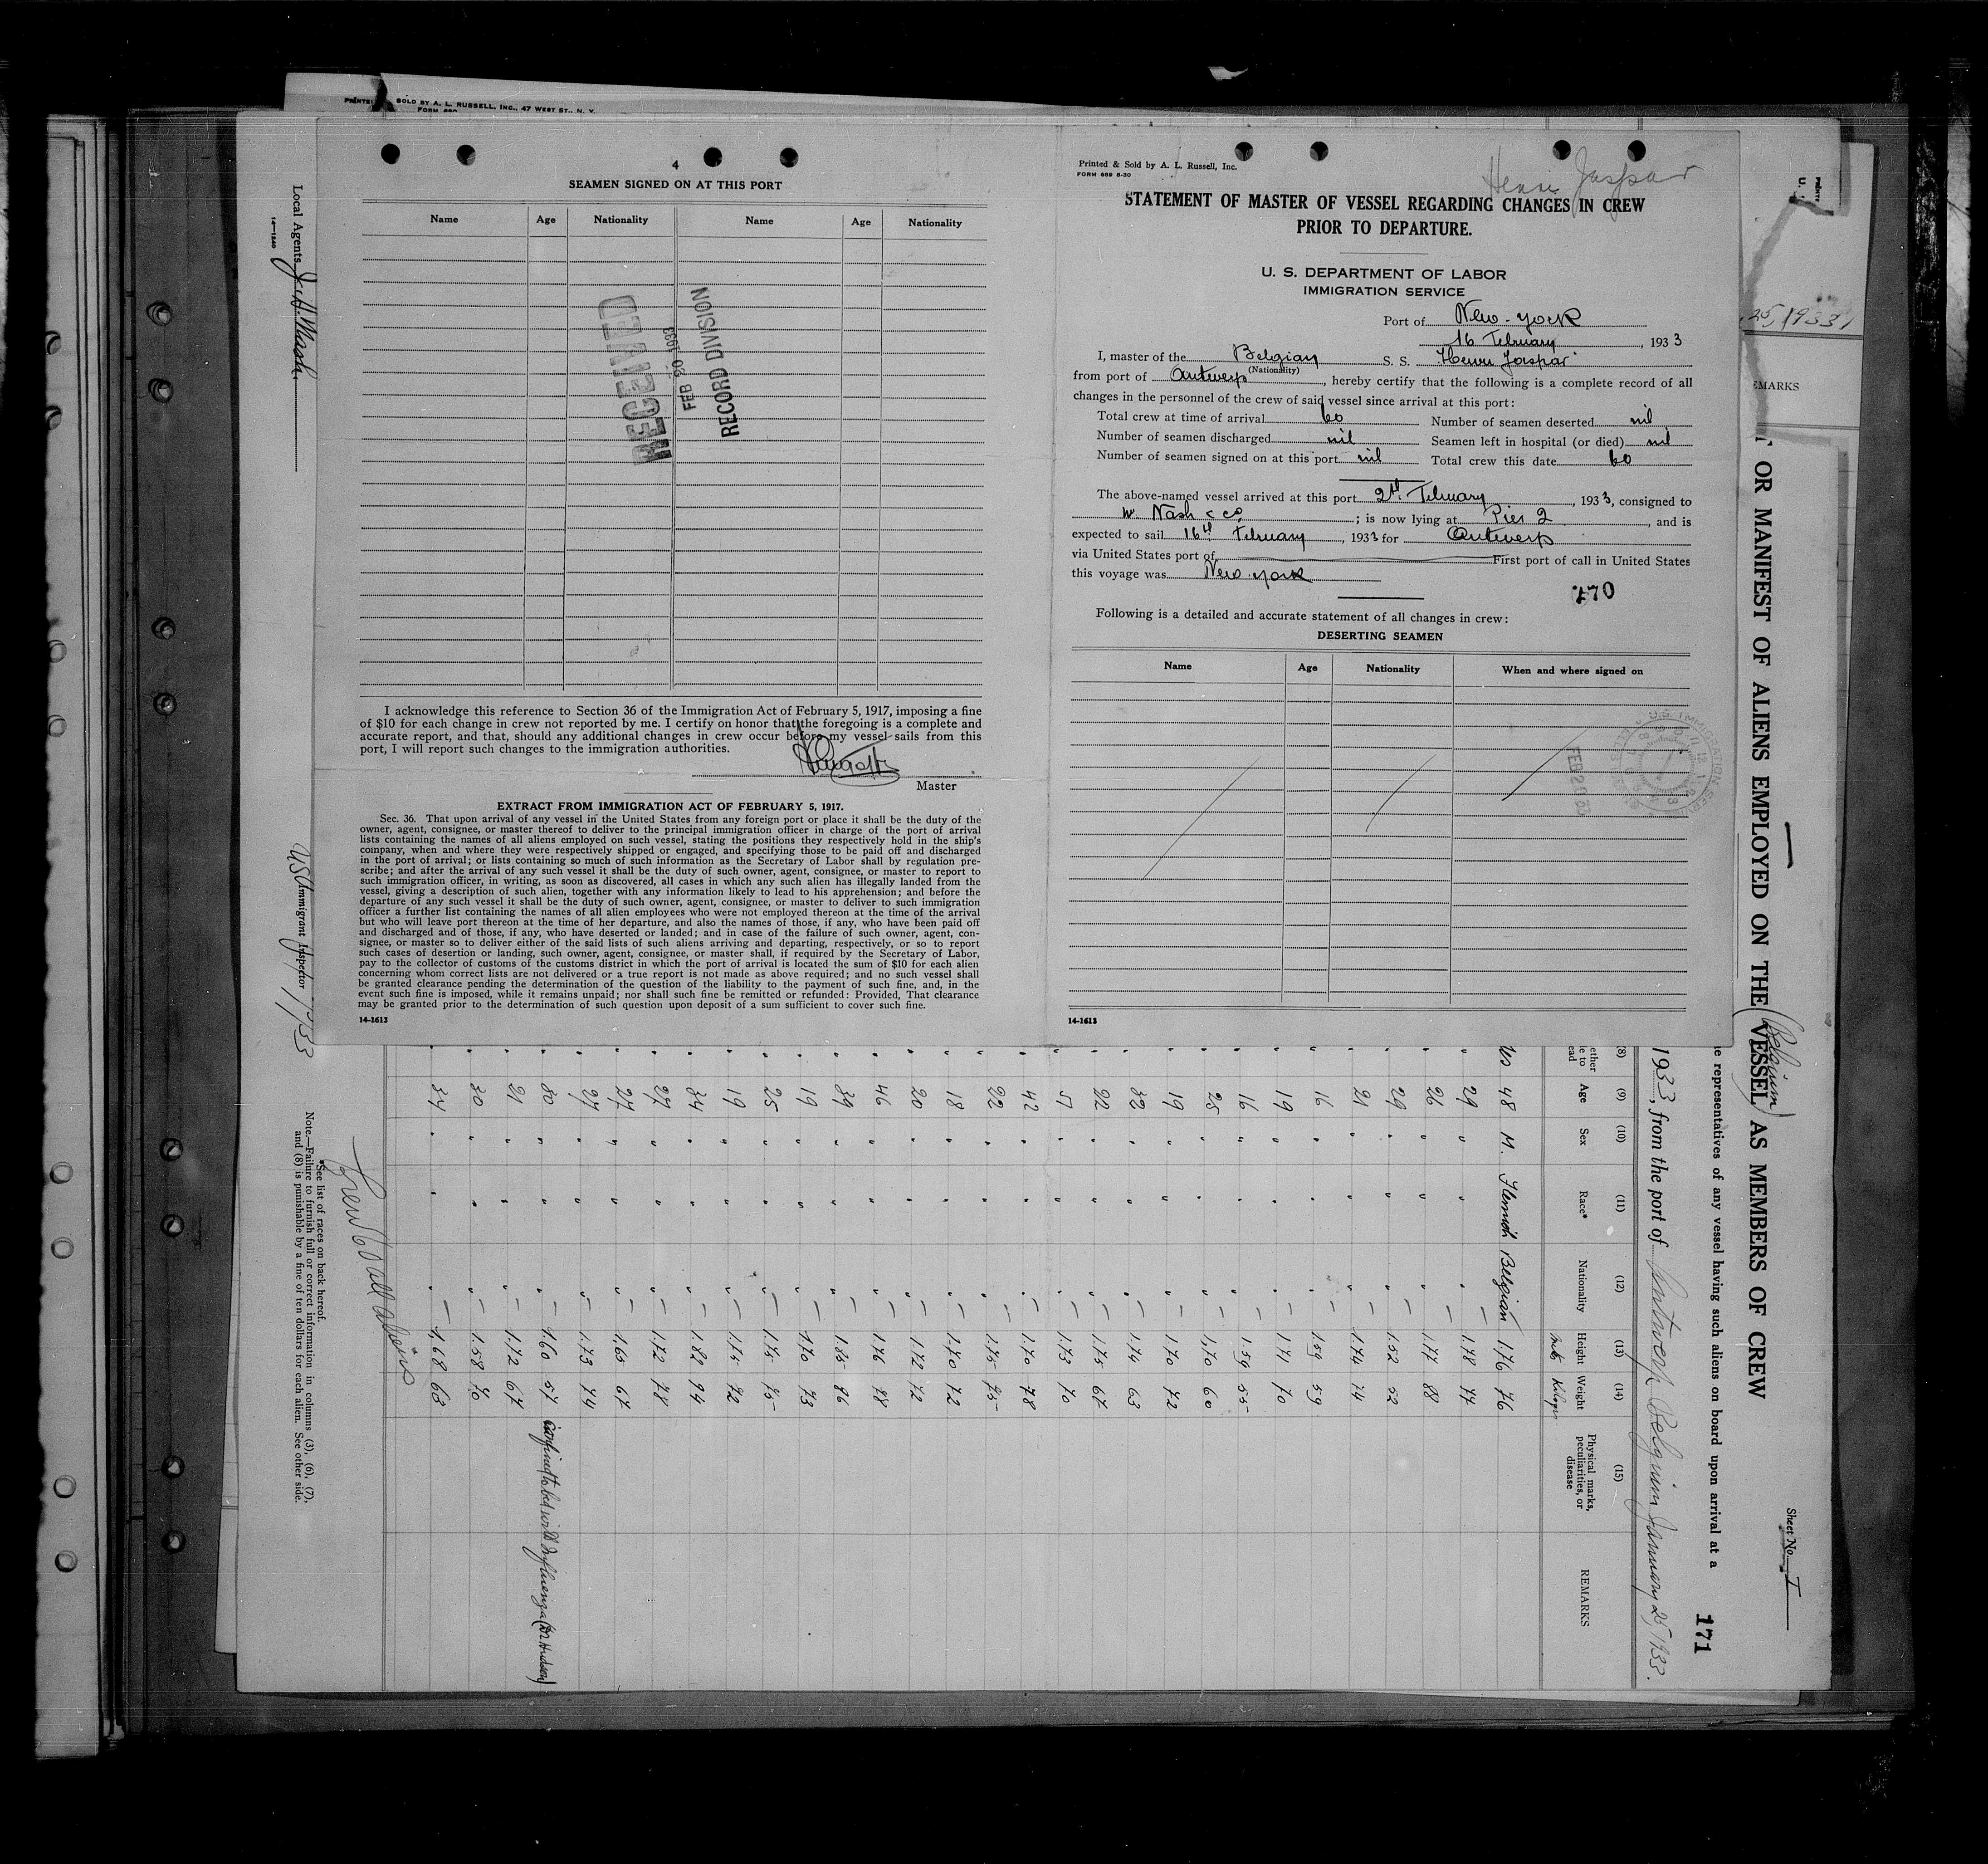 SOLD BY A. L. RUSSELL, INC., 47 WEST ST., N. Y.
4
SEAMEN SIGNED ON AT THIS PORT
Name Age Nationality Name Age Nationality
RECEIVED
FEB 20 1933
RECORD DIVISION
I acknowledge this reference to Section 36 of the Immigration Act of February 5, 1917, imposing a fine
of $10 for each change in crew not reported by me. I certify on honor that the foregoing is a complete and
accurate report, and that, should any additional changes in crew occur before my vessel sails from this
port, I will report such changes to the immigration authorities.
Master
EXTRACT FROM IMMIGRATION ACT OF FEBRUARY 5, 1917.
Sec. 36. That upon arrival of any vessel in the United States from any foreign port or place it shall be the duty of the
owner, agent, consignee, or master thereof to deliver to the principal immigration officer in charge of the port of arrival
lists containing the names of all aliens employed on such vessel, stating the positions they respectively hold in the ship's
company, when and where they were respectively shipped or engaged, and specifying those to be paid off and discharged
in the port of arrival; or lists containing so much of such information as the Secretary of Labor shall by regulation pre-
scribe; and after the arrival of any such vessel it shall be the duty of such owner, agent, consignee, or master to report to
such immigration officer, in writing, as soon as discovered, all cases in which any such alien has illegally landed from the
vessel, giving a description of such alien, together with any information likely to lead to his apprehension; and before the
departure of any such vessel it shall be the duty of such owner, agent, consignee, or master to deliver to such immigration
officer a further list containing the names of all alien employees who were not employed thereon at the time of the arrival
but who will leave port thereon at the time of her departure, and also the names of those, if any, who have been paid off
and discharged and of those, if any, who have deserted or landed; and in case of the failure of such owner, agent, con-
signee, or master so to deliver either of the said lists of such aliens arriving and departing, respectively, or so to report
such cases of desertion or landing, such owner, agent, consignee, or master shall, if required by the Secretary of Labor,
pay to the collector of customs of the customs district in which the port of arrival is located the sum of $10 for each alien
concerning whom correct lists are not delivered or a true report is not made as above required; and no such vessel shall
be granted clearance pending the determination of the question of the liability to the payment of such fine, and, in the
event such fine is imposed, while it remains unpaid; nor shall such fine be remitted or refunded: Provided, That clearance
may be granted prior to the determination of such question upon deposit of a sum sufficient to cover such fine.
14-1613
Printed & Sold by A. L. Russell, Inc.
FORM 689 8-30
Henri Jaspar
STATEMENT OF MASTER OF VESSEL REGARDING CHANGES IN CREW
PRIOR TO DEPARTURE.
U. S. DEPARTMENT OF LABOR
IMMIGRATION SERVICE
Port of New-york
16 February, 1933
I, master of the Belgian S. S. Henri Jaspar
(Nationality)
from port of Antwerp, hereby certify that the following is a complete record of all
changes in the personnel of the crew of said vessel since arrival at this port:
Total crew at time of arrival 60 Number of seamen deserted nil
Number of seamen discharged nil Seamen left in hospital (or died) nil
Number of seamen signed on at this port nil Total crew this date 60
The above-named vessel arrived at this port February, 1933, consigned to
W. Nash & co; is now lying at Pier 2, and is
expected to sail 16th February, 1933 for Antwerp
via United States port of First port of call in United States
this voyage was New-york
170
Following is a detailed and accurate statement of all changes in crew:
DESERTING SEAMEN
Name Age Nationality When and where signed on
U.S. IMMIGRATION SERVICE
14-1613
25, 1933
EMARKS
Sheet No. I
T OR MANIFEST OF ALIENS EMPLOYED ON THE VESSEL AS MEMBERS OF CREW
(Belgium)
e representatives of any vessel having such aliens on board upon arrival at a
171
1933, from the port of Antwerp Belgium January 25, 1933.
(8) (9) (10) (11) (12) (13) (14) (15)
ether e to ead Age Sex Race* Nationality Height Weight Physical marks, peculiarities, or disease REMARKS
48 M. Flemish Belgian 1.76 76
29 " " " 1.78 77
26 " " " 1.77 88
29 " " " 1.52 52
21 " " " 1.74 74
16 " " " 1.59 59
19 " " " 1.71 70
16 " " " 1.59 55
25 " " " 1.70 60
19 " " " 1.70 72
32 " " " 1.74 63
22 " " " 1.75 67
51 " " " 1.73 70
42 " " " 1.70 78
22 " " " 1.75 75
18 " " " 1.70 72
20 " " " 1.72 72
46 " " " 1.76 78
39 " " " 1.85 86
19 " " " 1.70 73
25 " " " 1.75 75
19 " " " 1.75 72
34 " " " 1.82 94
27 " " " 1.72 78
27 " " " 1.65 67
27 " " " 1.73 74
30 " " " 1.60 57 Confined to bed with Influenza (Dr Hudson)
21 " " " 1.72 67
30 " " " 1.58 70
37 " " " 1.68 63
Crew 60 all aliens
*See list of races on back hereof.
Note.—Failure to furnish full or correct information in columns (3), (6), (7),
and (8) is punishable by a fine of ten dollars for each alien. See other side.
Local Agents
Immigrant Inspector